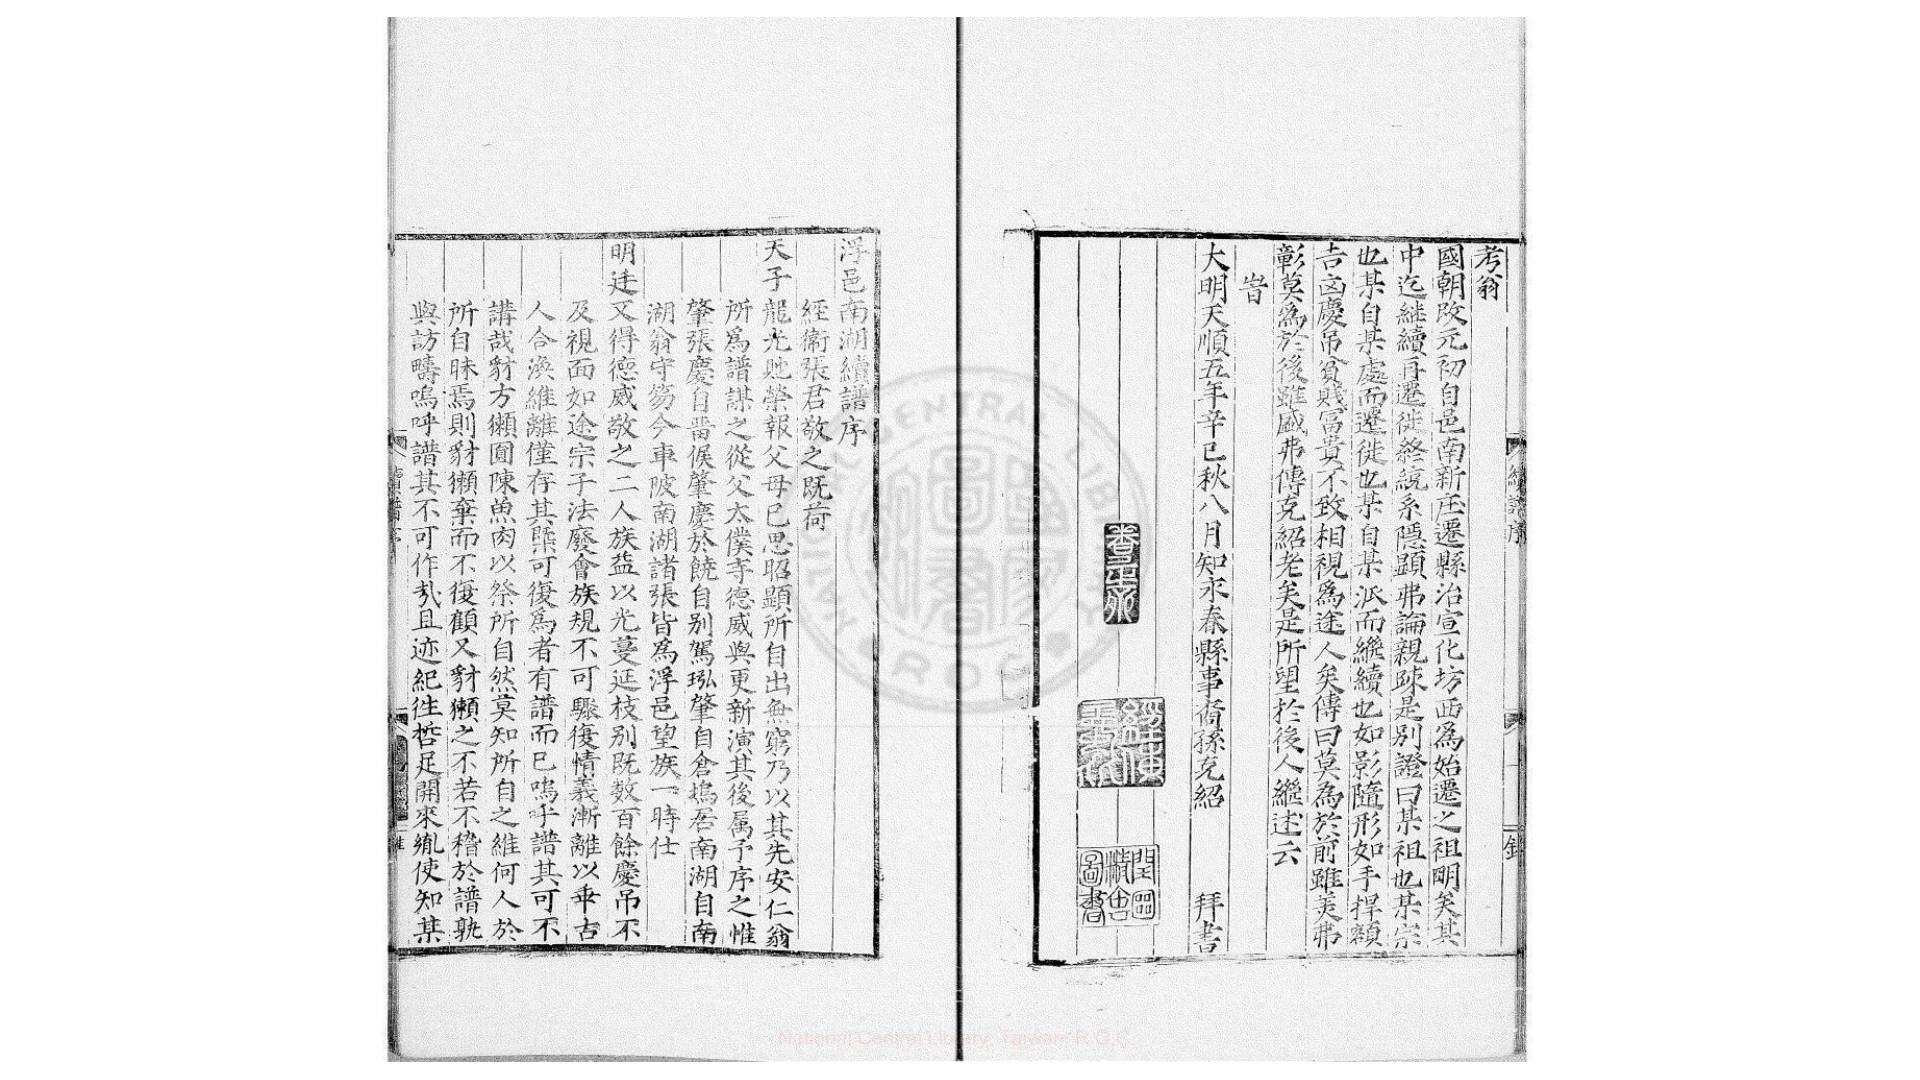 考翁
國朝改元初自邑南新庄遷縣治宣化坊西為始遷之祖明矣其
中迄継續再遷徙終統系隱顯弗論親踈是別證曰某祖也某宗
也某自某處而遷徙也某自某派而繼續也如影隨形如手捍頭
吉凶慶吊貧賤冨貴不致相視為途人矣傳曰莫為於前雖美弗
彰莫為於後雖盛弗傳克紹老矣是所望於後人繼述云
旹
大明天順五年辛巳秋八月知永春縣事裔孫克紹 拜書
浮邑南湖續譜序
經衛張君敬之既荷
天子龍光貤榮報父母已思昭顯所自出無窮乃以其先安仁翁
所為譜謀之從父太僕寺德威與更新演其後属予序之惟
肇張慶自畱侯肇慶於饒自别駕㺬肇自倉塢居南湖自南
湖翁守笏今車陂南湖諸張皆為浮邑望族一時仕
明廷又得德威敬之二人族益以光蔓延枝别既数百餘慶吊不
及視面如途宗子法廢會族規不可驟復情義漸離以乖古
人合渙維離僅存其槩可復為者有譜而已嗚乎譜其可不
講哉豺方獺圓陳魚肉以祭所自然莫知所自之維何人於
所自昧焉則豺獺棄而不復顧又豺獺之不若不稽於譜孰
與訪疇嗚呼譜其不可作㢤且迹紀徃喆足開來胤使知某